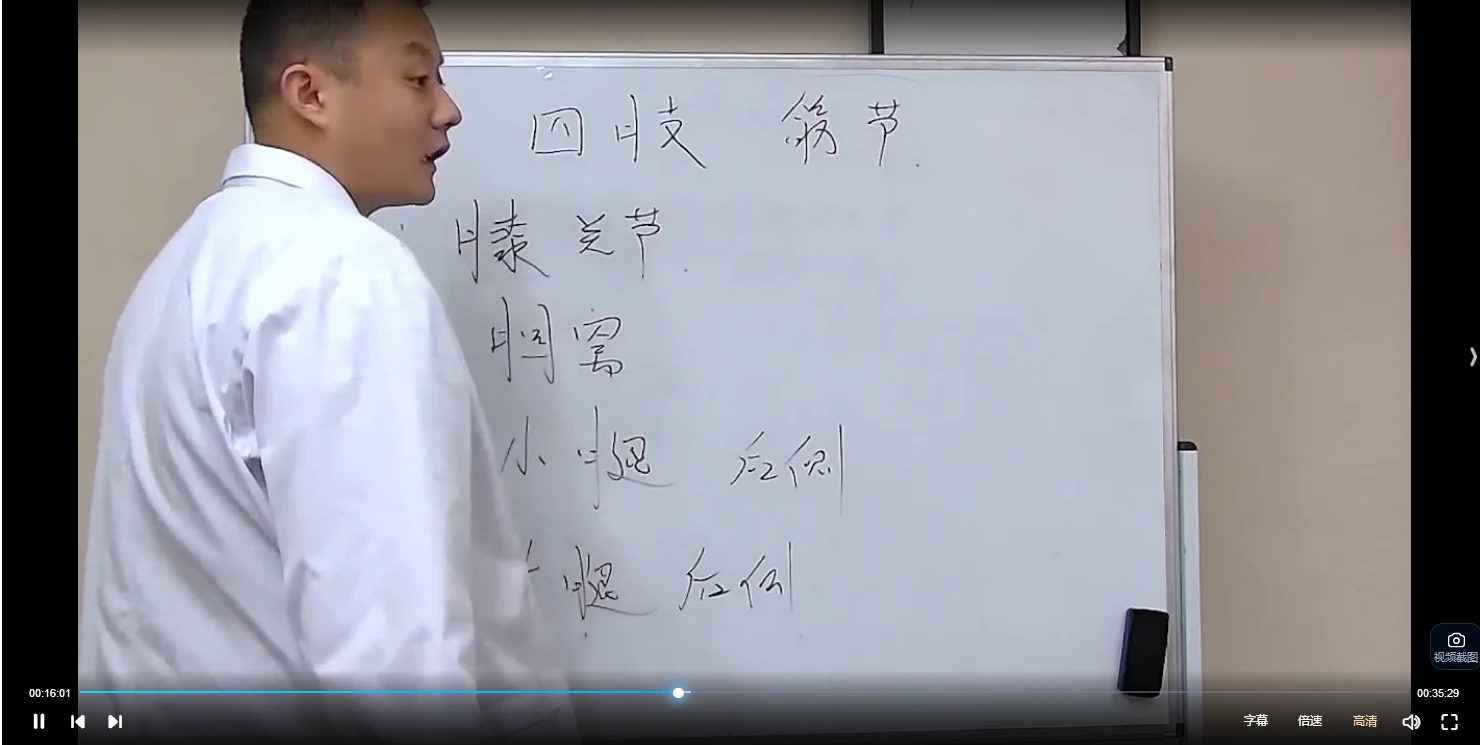 四肢 筋节
膝关节
腘窝
小腿 后侧
腿 后侧
视频截图
00:16:01
00:35:29
字幕 倍速 高清